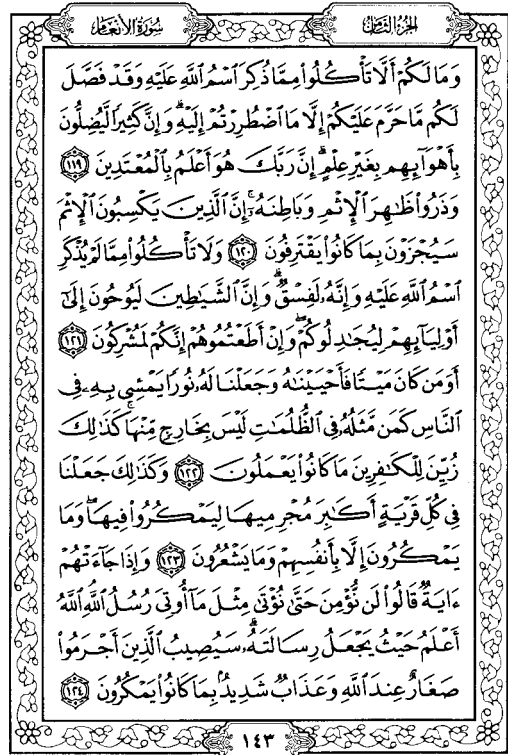 سُورَةُ الأَنْعَام
الجُزْءُ الثَّامِن
وَمَا لَكُمْ أَلَّا تَأْكُلُوا۟ مِمَّا ذُكِرَ ٱسْمُ ٱللَّهِ عَلَيْهِ وَقَدْ فَصَّلَ
لَكُم مَّا حَرَّمَ عَلَيْكُمْ إِلَّا مَا ٱضْطُرِرْتُمْ إِلَيْهِ ۗ وَإِنَّ كَثِيرًا لَّيُضِلُّونَ
بِأَهْوَآئِهِم بِغَيْرِ عِلْمٍ ۗ إِنَّ رَبَّكَ هُوَ أَعْلَمُ بِٱلْمُعْتَدِينَ ١١٩
وَذَرُوا۟ ظَٰهِرَ ٱلْإِثْمِ وَبَاطِنَهُۥٓ ۚ إِنَّ ٱلَّذِينَ يَكْسِبُونَ ٱلْإِثْمَ
سَيُجْزَوْنَ بِمَا كَانُوا۟ يَقْتَرِفُونَ ١٢٠ وَلَا تَأْكُلُوا۟ مِمَّا لَمْ يُذْكَرِ
ٱسْمُ ٱللَّهِ عَلَيْهِ وَإِنَّهُۥ لَفِسْقٌ ۗ وَإِنَّ ٱلشَّيَٰطِينَ لَيُوحُونَ إِلَىٰٓ
أَوْلِيَآئِهِمْ لِيُجَٰدِلُوكُمْ ۖ وَإِنْ أَطَعْتُمُوهُمْ إِنَّكُمْ لَمُشْرِكُونَ ١٢١
أَوَمَن كَانَ مَيْتًا فَأَحْيَيْنَٰهُ وَجَعَلْنَا لَهُۥ نُورًا يَمْشِى بِهِۦ فِى
ٱلنَّاسِ كَمَن مَّثَلُهُۥ فِى ٱلظُّلُمَٰتِ لَيْسَ بِخَارِجٍ مِّنْهَا ۚ كَذَٰلِكَ
زُيِّنَ لِلْكَٰفِرِينَ مَا كَانُوا۟ يَعْمَلُونَ ١٢٢ وَكَذَٰلِكَ جَعَلْنَا
فِى كُلِّ قَرْيَةٍ أَكَٰبِرَ مُجْرِمِيهَا لِيَمْكُرُوا۟ فِيهَا ۖ وَمَا
يَمْكُرُونَ إِلَّا بِأَنفُسِهِمْ وَمَا يَشْعُرُونَ ١٢٣ وَإِذَا جَآءَتْهُمْ
ءَايَةٌ قَالُوا۟ لَن نُّؤْمِنَ حَتَّىٰ نُؤْتَىٰ مِثْلَ مَآ أُوتِىَ رُسُلُ ٱللَّهِ ۘ ٱللَّهُ
أَعْلَمُ حَيْثُ يَجْعَلُ رِسَالَتَهُۥ ۗ سَيُصِيبُ ٱلَّذِينَ أَجْرَمُوا۟
صَغَارٌ عِندَ ٱللَّهِ وَعَذَابٌ شَدِيدٌۢ بِمَا كَانُوا۟ يَمْكُرُونَ ١٢٤
١٤٣